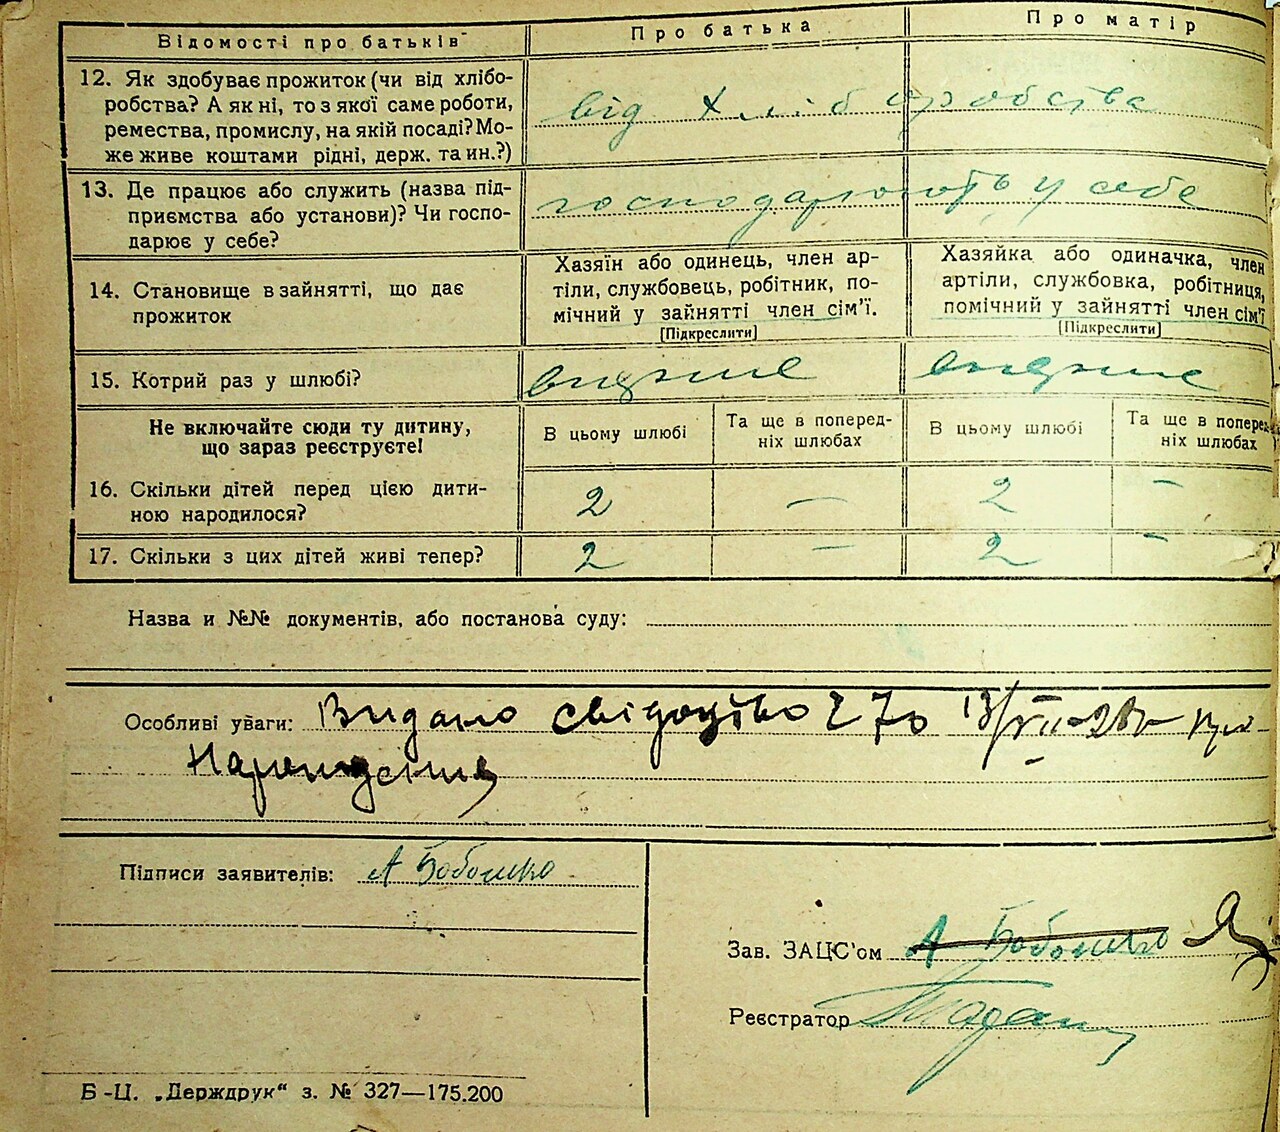 Відомості про батьків
Про батька
Про матір
12. Як здобуває прожиток (чи від хлібо-
робства? А як ні, то з якої саме роботи,
ремества, промислу, на якій посаді? Мо-
же живе коштами рідні, держ. та ин.?)
від хліборобства
13. Де працює або служить (назва під-
приємства або установи)? Чи госпо-
дарює у себе?
господарюють у себе
14. Становище в зайнятті, що дає
прожиток
Хазяїн або одинець, член ар-
тіли, службовець, робітник, по-
мічний у зайнятті член сім'ї.
[Підкреслити]
Хазяйка або одиначка, член
артіли, службовка, робітниця,
помічний у зайнятті член сім'ї
[Підкреслити]
15. Котрий раз у шлюбі?
Не включайте сюди ту дитину,
що зараз реєструєте!
В цьому шлюбі
Та ще в поперед-
ніх шлюбах
В цьому шлюбі
Та ще в поперед-
ніх шлюбах
16. Скільки дітей перед цією дити-
ною народилося?
2 — 2 —
17. Скільки з цих дітей живі тепер?
2 — 2 —
Назва и №№ документів, або постанова суду:
Особливі уваги: Видано свідоцтво 270 13/VII-28р про
Народження
Підписи заявителів: А Бобошко
Зав. ЗАЦС'ом А Бобошко
Реєстратор
Б-Ц. „Держдрук“ з. № 327—175.200